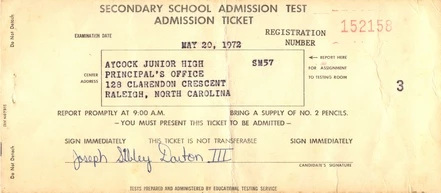 SECONDARY SCHOOL ADMISSION TEST
ADMISSION TICKET
REGISTRATION NUMBER 152158
EXAMINATION DATE
MAY 20, 1972
AYCOCK JUNIOR HIGH SM57
PRINCIPAL'S OFFICE
128 CLARENDON CRESCENT
RALEIGH, NORTH CAROLINA
CENTER ADDRESS
REPORT HERE FOR ASSIGNMENT TO TESTING ROOM
3
REPORT PROMPTLY AT 9:00 AM. BRING A SUPPLY OF NO. 2 PENCILS.
— YOU MUST PRESENT THIS TICKET TO BE ADMITTED —
SIGN IMMEDIATELY THIS TICKET IS NOT TRANSFERABLE SIGN IMMEDIATELY
Joseph Sibley Daiton III
CANDIDATE'S SIGNATURE
TESTS PREPARED AND ADMINISTERED BY EDUCATIONAL TESTING SERVICE
Do Not Detach
Do Not Detach
Do Not Detach